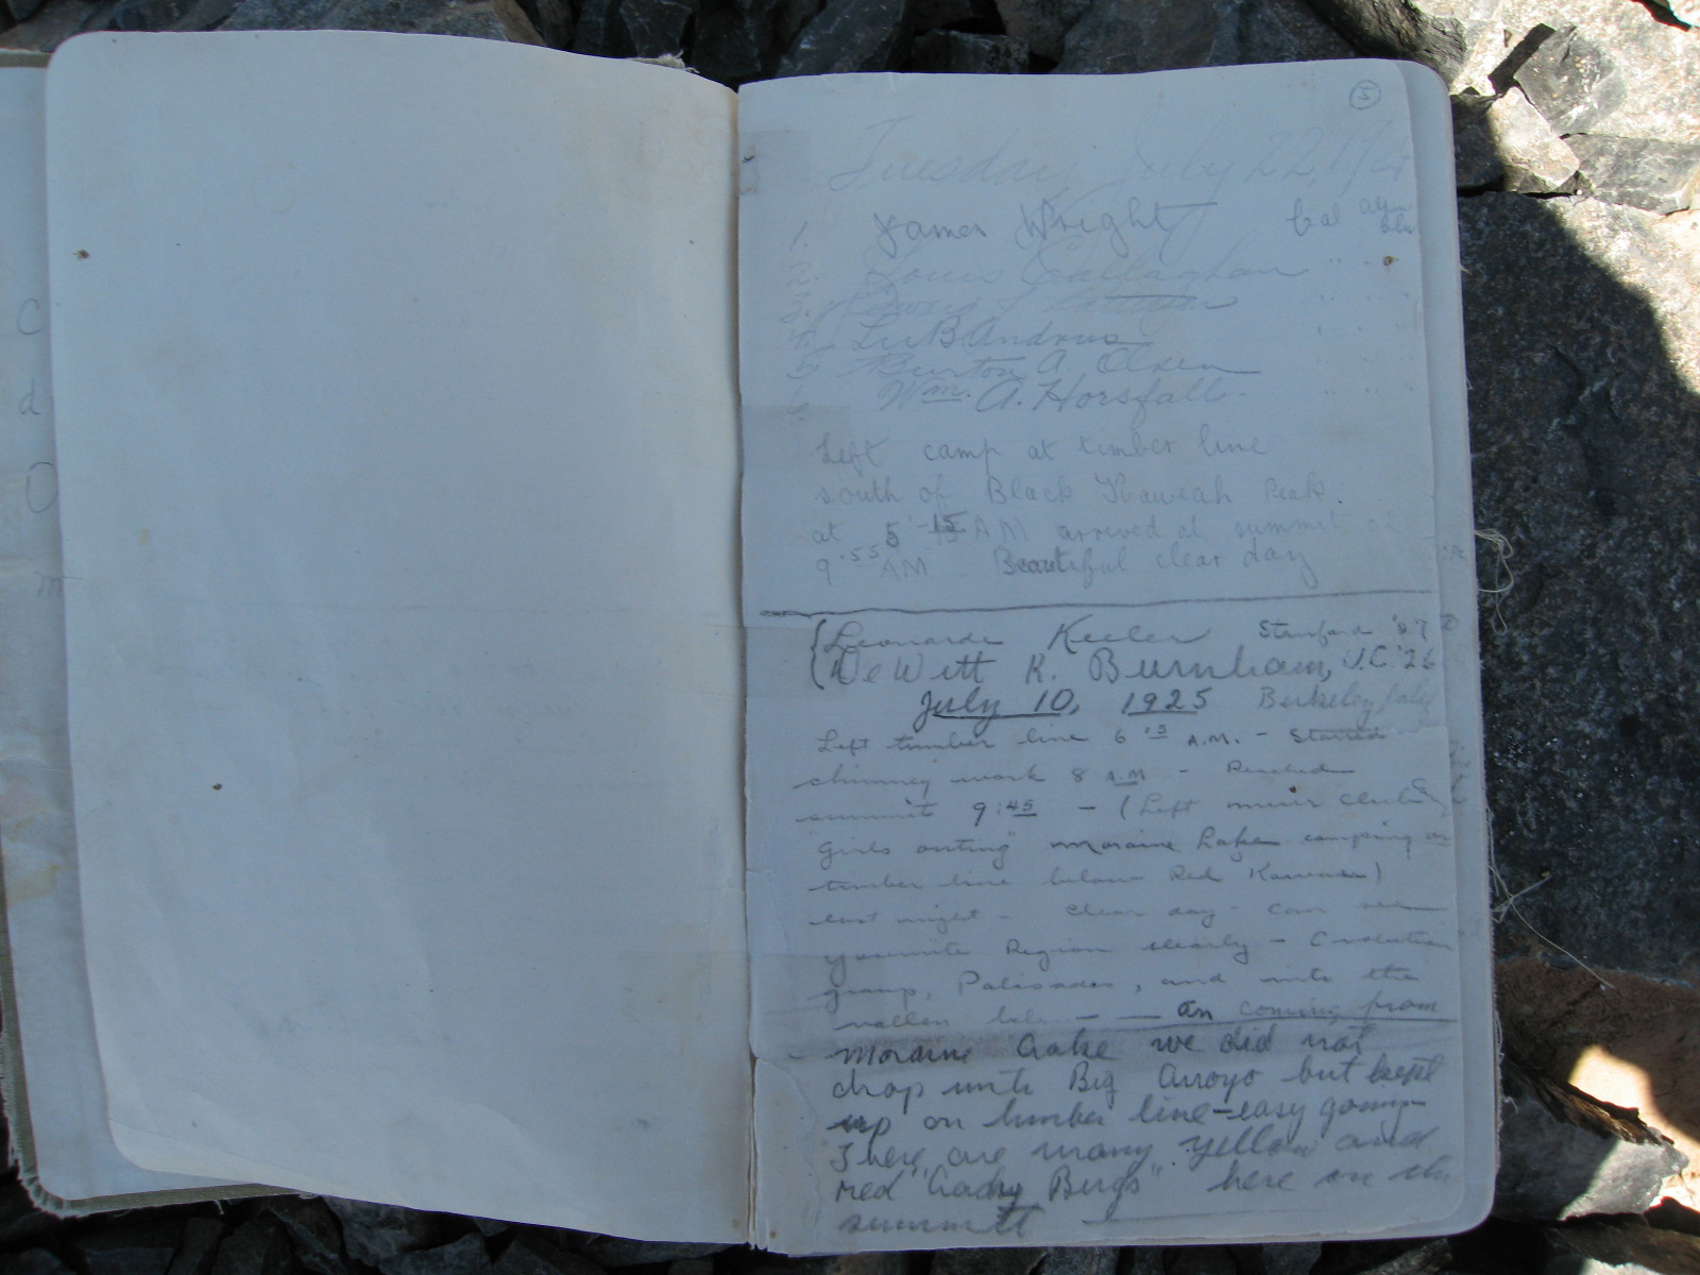 5
Tuesday July 22, 1924
1. James Wright Cal
2. Louis Callaghan " "
3. " "
4. Lee B Andrews " "
5. Burton A. Olsen " "
6. Wm. A. Horsfall. " "
Left camp at timber line
south of Black Kaweah Peak.
at 5-15 AM arrived at summit at
9.55 AM Beautiful clear day
Leonarde Keeler Stanford '27
DeWitt K. Burnham, U.C. '26
July 10, 1925 Berkeley
Left timber line 6 15 A.M. - Started
chimney work 8 A.M - Reached
summit 9:45 - (Left
"Girls outing" Moraine Lake camping
timber line below Red Kaweah)
last night - clear day - can see
Yosemite Region clearly - Evolution
group, Palisades, and into the
— — In coming from
Moraine Lake we did not
drop into Big Arroyo but kept
up on timber line - easy going
There are many yellow and
red "Lady Bugs" here on the
summit
C
d
O
m